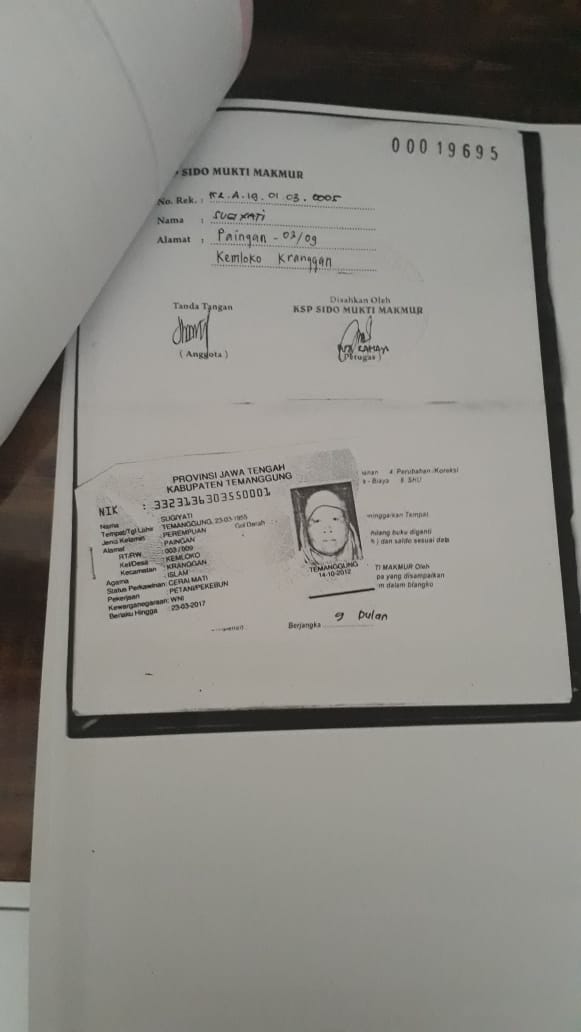 00019695
SIDO MUKTI MAKMUR
No. Rek. : K2.A.19.01.03.0005
Nama : SUGIYATI
Alamat : Paingan - 03/09
Kemloko Kranggan
Tanda Tangan
( Anggota )
Disahkan Oleh
KSP SIDO MUKTI MAKMUR
( Petugas )
PROVINSI JAWA TENGAH
KABUPATEN TEMANGGUNG
NIK : 3323136303550001
Nama : SUGIYATI
Tempat/Tgl Lahir : TEMANGGUNG, 23-03-1955
Jenis Kelamin : PEREMPUAN Gol Darah
Alamat : PAINGAN
RT/RW : 003/009
Kel/Desa : KEMLOKO
Kecamatan : KRANGGAN
Agama : ISLAM
Status Perkawinan: CERAI MATI
Pekerjaan : PETANI/PEKEBUN
Kewarganegaraan: WNI
Berlaku Hingga : 23-03-2017
TEMANGGUNG
14-10-2012
4. Perubahan /Koreksi
- Biaya 8. SHU
minggalkan Tempat
hilang buku diganti
) dan saldo sesuai data
TI MAKMUR Oleh
pa yang disampaikan
m dalam blangko
Berjangka 9 bulan